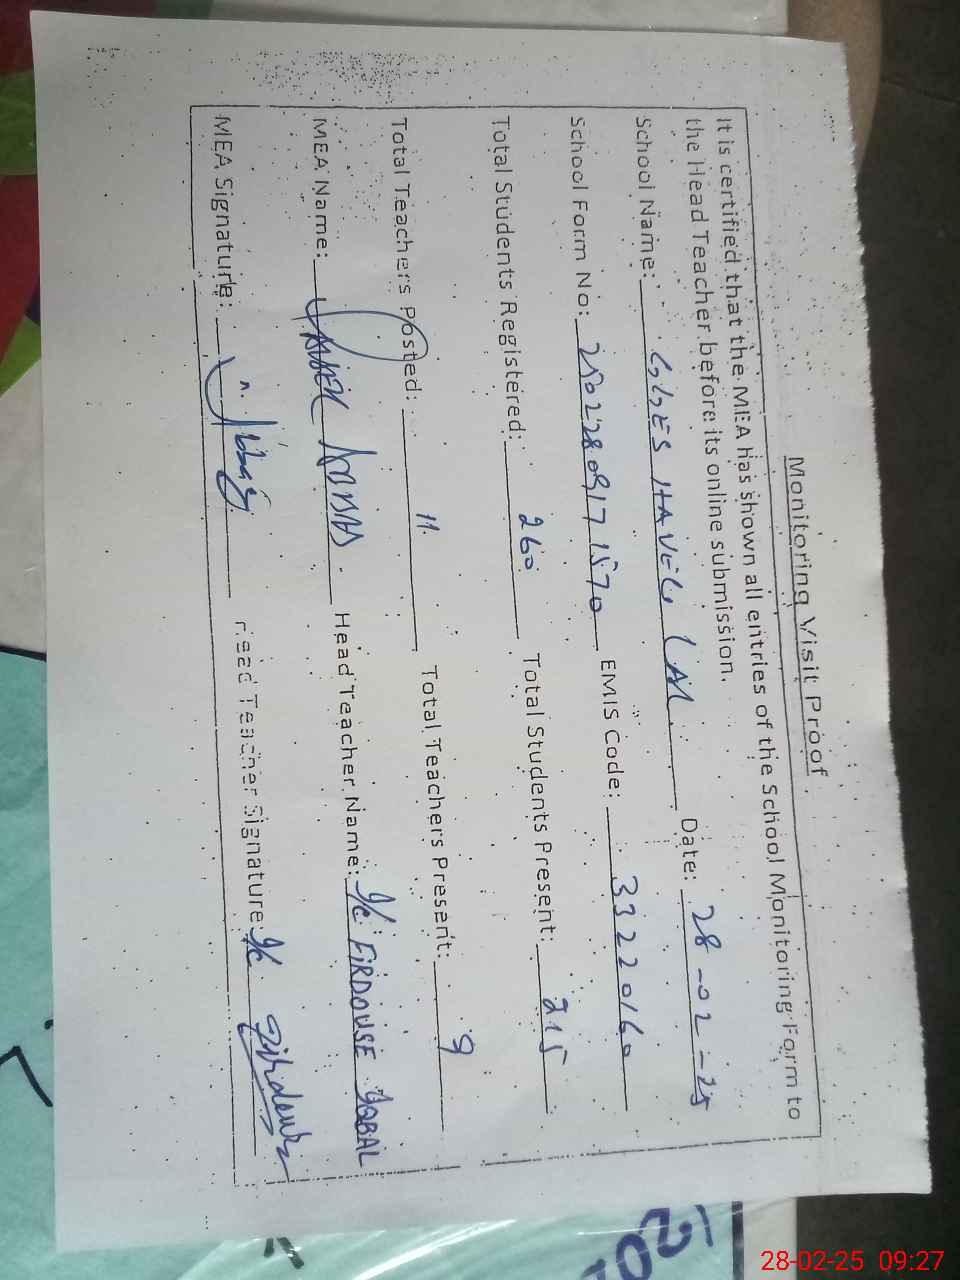 Monitoring Visit Proof
It is certified that the MEA has shown all entries of the School Monitoring Form to
the Head Teacher before its online submission.
School Name: GGES HAVELI LAL Date: 28-02-25
School Form No: EMIS Code: 33220160
Total Students Registered: 260 Total Students Present: 215
Total Teachers Posted: 11 Total Teachers Present: 9
MEA Name: ABBAS Head Teacher Name: I/C FIRDOUSE IQBAL
MEA Signature: Head Teacher Signature: I/C
28-02-25 09:27